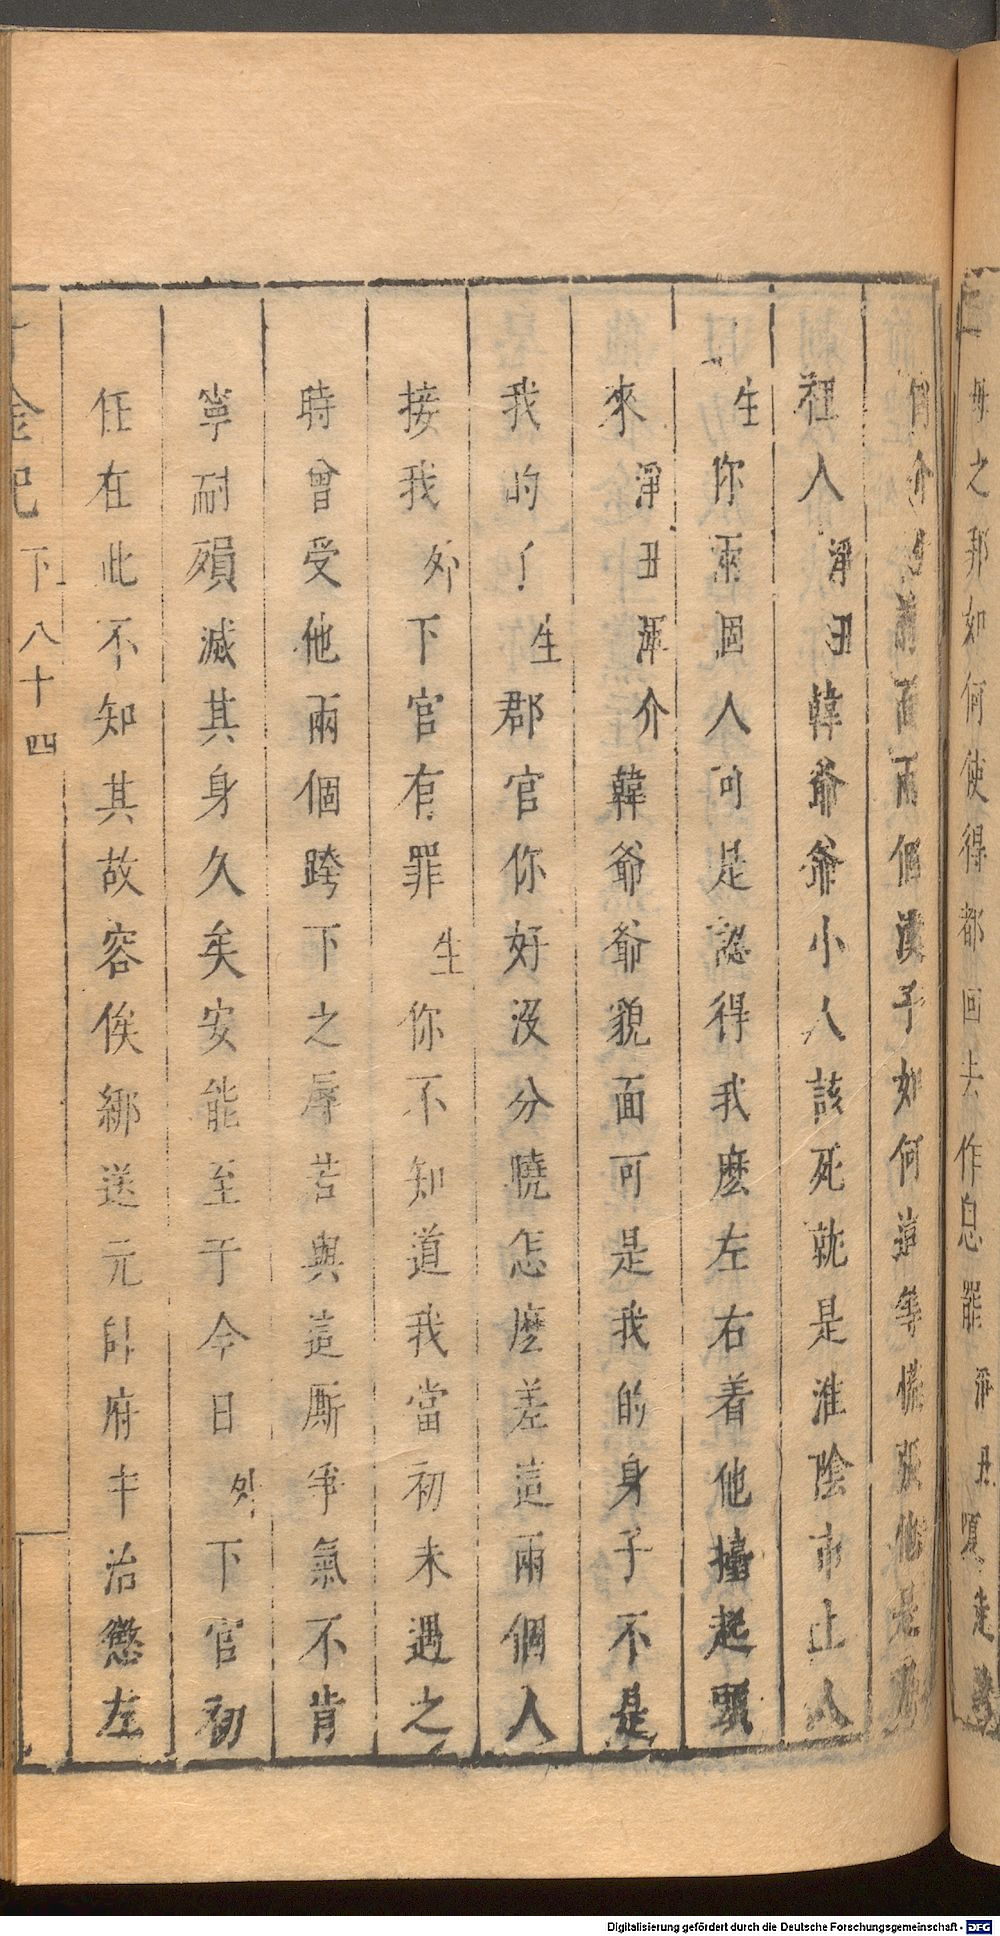 之那如何使得都回去作息罷淨丑走
介前面兩個漢子如何這等慌張他是那
裡人淨丑韓爺爺小人該死就是淮陰市上人
生你兩個人可是認得我麽左右着他擡起頭
來淨丑渾介韓爺爺貌面可是我的身子不是
我的了生郡官你好沒分曉怎麽差這兩個人
接我外下官有罪生你不知道我當初未遇之
時曾受他兩個跨下之辱若與這厮爭氣不肯
寧耐殞滅其身久矣安能至于今日外下官初
任在此不知其故容俟綁送元帥府中治懲左
千金記 下 八十四
Digitalisierung gefördert durch die Deutsche Forschungsgemeinschaft - DFG